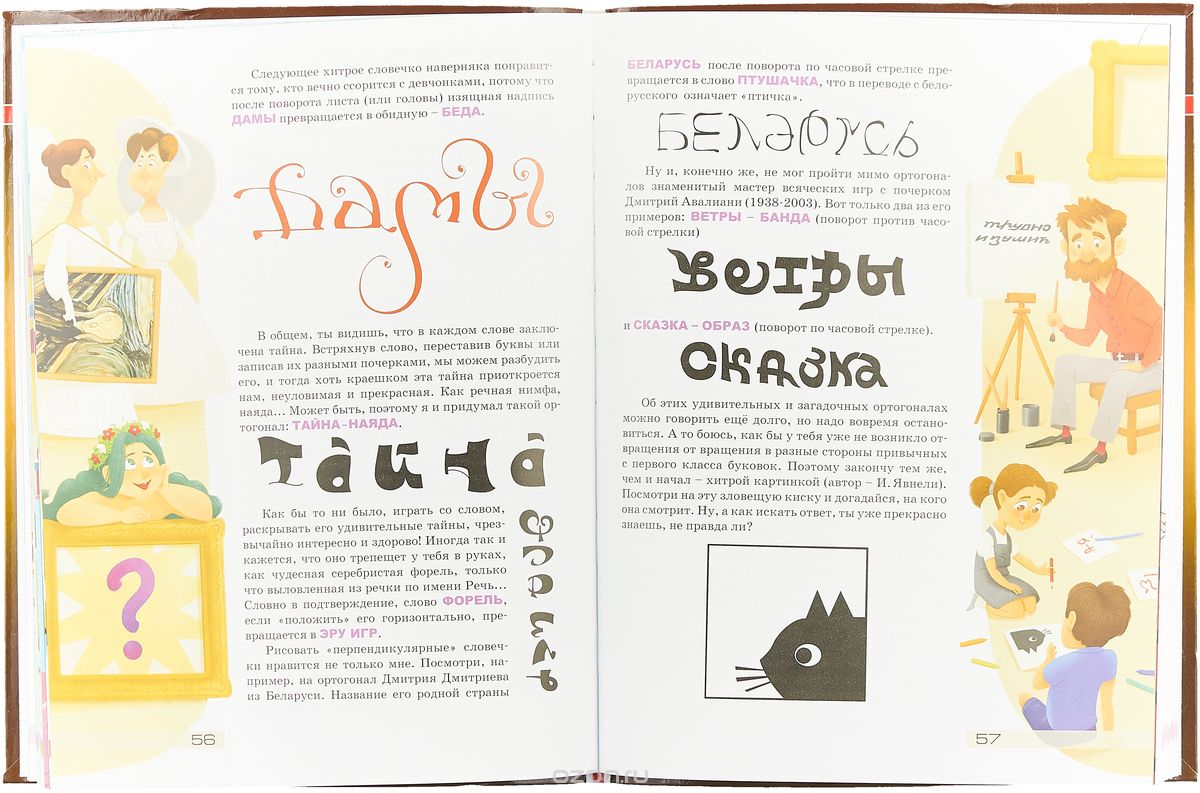 Следующее хитрое словечко наверняка понравит-
ся тому, кто вечно ссорится с девчонками, потому что
после поворота листа (или головы) изящная надпись
ДАМЫ превращается в обидную – БЕДА.
дамы
В общем, ты видишь, что в каждом слове заклю-
чена тайна. Встряхнув слово, переставив буквы или
записав их разными почерками, мы можем разбудить
его, и тогда хоть краешком эта тайна приоткроется
нам, неуловимая и прекрасная. Как речная нимфа,
наяда... Может быть, поэтому я и придумал такой ор-
тогонал: ТАЙНА-НАЯДА.
тайна
Как бы то ни было, играть со словом,
раскрывать его удивительные тайны, чрез-
вычайно интересно и здорово! Иногда так и
кажется, что оно трепещет у тебя в руках,
как чудесная серебристая форель, только
что выловленная из речки по имени Речь...
Словно в подтверждение, слово ФОРЕЛЬ,
если «положить» его горизонтально, пре-
вращается в ЭРУ ИГР.
Рисовать «перпендикулярные» словеч-
ки нравится не только мне. Посмотри, на-
пример, на ортогонал Дмитрия Дмитриева
из Беларуси. Название его родной страны
форель
56
БЕЛАРУСЬ после поворота по часовой стрелке пре-
вращается в слово ПТУШАЧКА, что в переводе с бело-
русского означает «птичка».
БЕЛАРУСЬ
Ну и, конечно же, не мог пройти мимо ортогона-
лов знаменитый мастер всяческих игр с почерком
Дмитрий Авалиани (1938-2003). Вот только два из его
примеров: ВЕТРЫ – БАНДА (поворот против часо-
вой стрелки)
ветры
и СКАЗКА – ОБРАЗ (поворот по часовой стрелке).
СКАЗКА
Об этих удивительных и загадочных ортогоналах
можно говорить ещё долго, но надо вовремя остано-
виться. А то боюсь, как бы у тебя уже не возникло от-
вращения от вращения в разные стороны привычных
с первого класса буковок. Поэтому закончу тем же,
чем и начал – хитрой картинкой (автор – И. Явнели).
Посмотри на эту зловещую киску и догадайся, на кого
она смотрит. Ну, а как искать ответ, ты уже прекрасно
знаешь, не правда ли?
57
трудно
?
ozon.ru